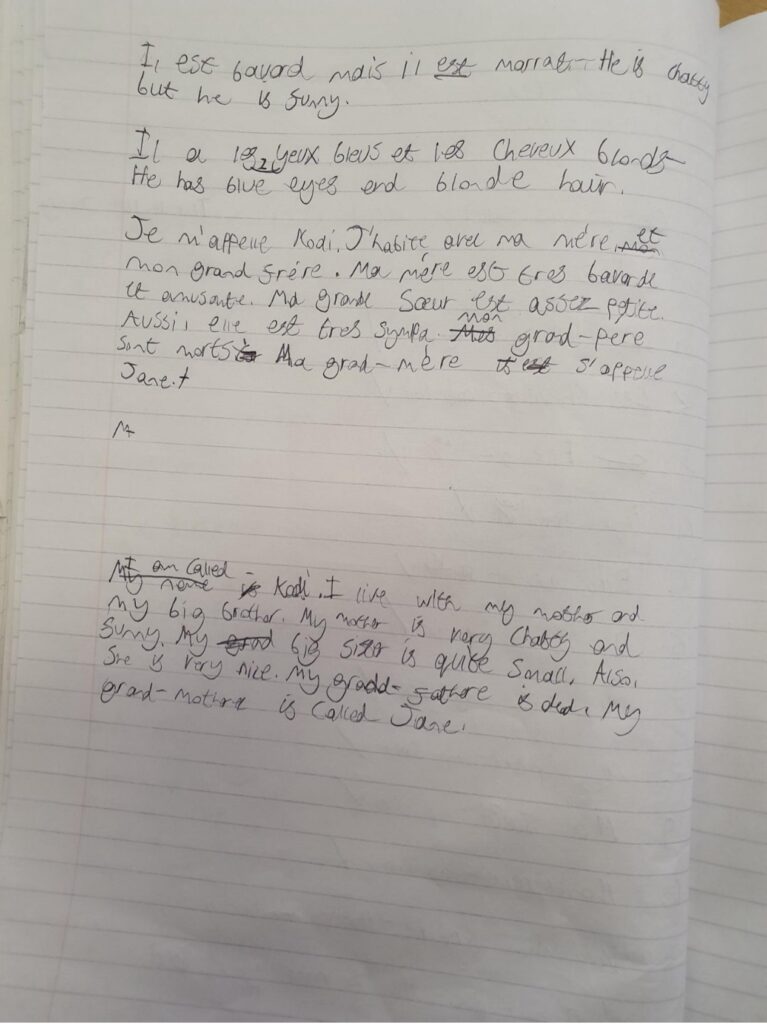 Il est bavard mais il est marrat - He is chatty
but he is funny.
Il a les yeux bleus et les cheveux blonds -
He has blue eyes and blonde hair.
Je m'appelle Kodi. J'habite avec ma mère et
mon grand frére. Ma mére est tres bavarde
et amusante. Ma grande Sœur est assez petite.
Aussi, elle est tres sympa. mon grad-pere
sont morts Ma grad-mère s'appelle
Jane.
M
I am called -
My name is Kodi. I live with my mother and
my big brother. My mother is very chatty and
funny. My big sister is quite small. Also,
She is very nice. My gradd-fathere is ded. My
grand-mother is called Jane.